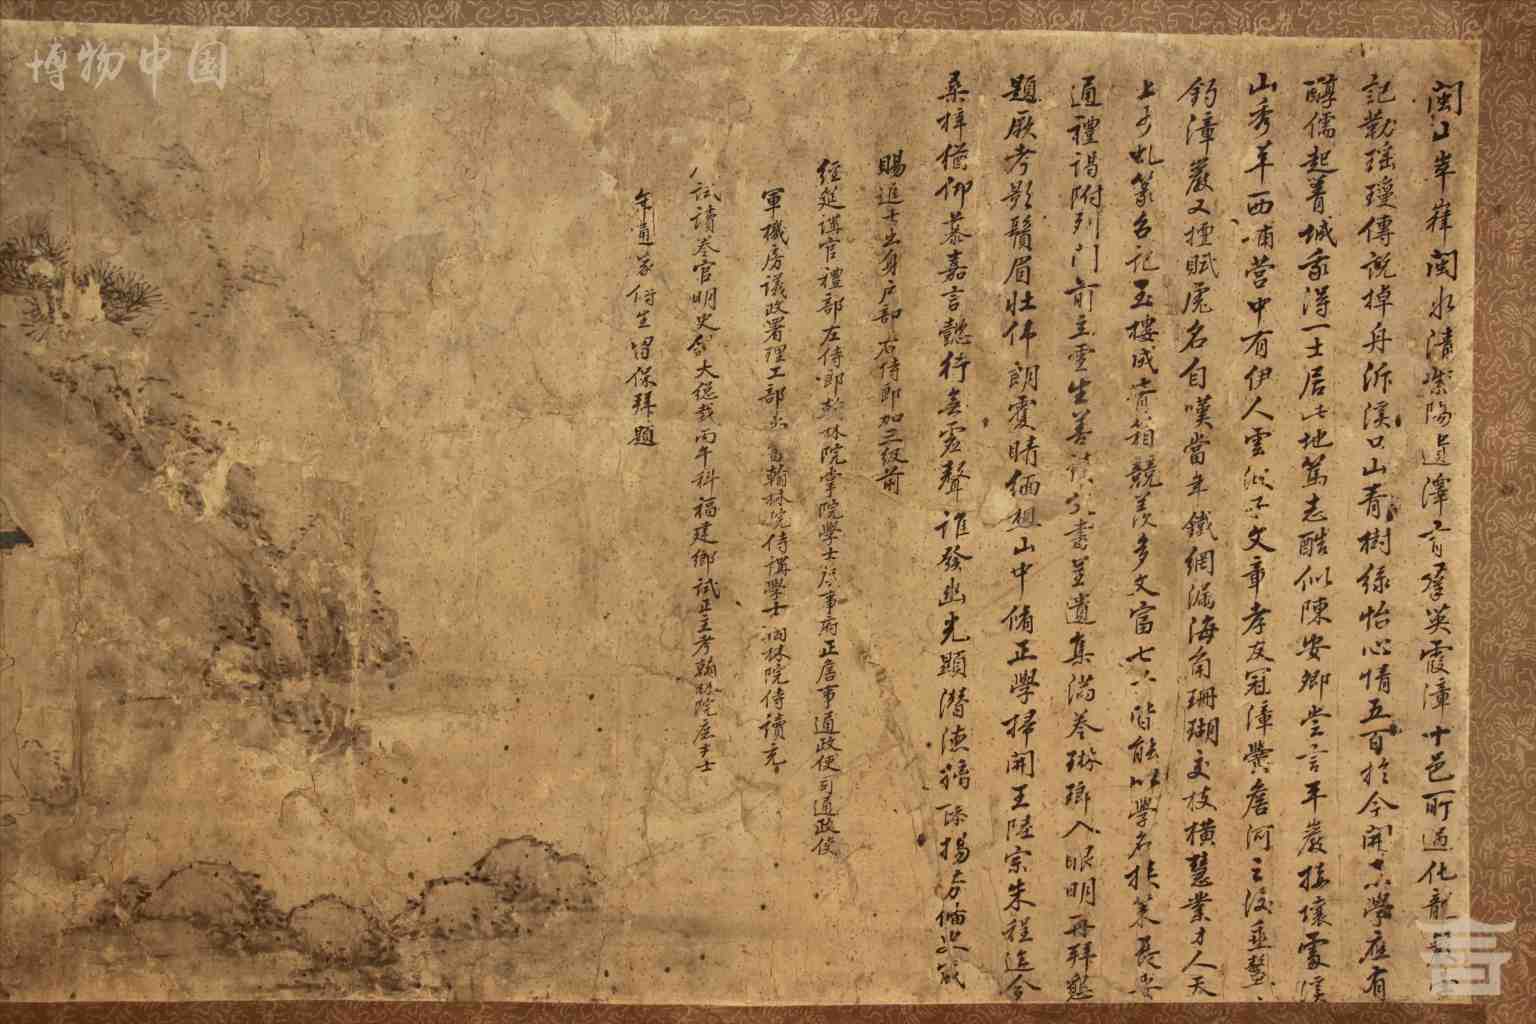 閩山崒嵂閩水清紫陽過澤育群英霞漳十邑所過化龍
記勒瑤瓊傳說掉舟泝溪口山青樹綠怡心情五百於今開小學應有
醇儒起菁城我得一士居此地篤志酷似陳安卿嘗言平巖接壤霞溪
山秀莘西埔營中有伊人雲從子文章孝友冠漳黌詹河之後垂
釣漳巖又擅賦鹿名自嘆當年鐵網漏海角珊瑚交枝橫慧業才人天
上子虬篆名記玉樓成青箱競羨多文富七六皆能以學名挾策長安
通禮謁附列門前主雲生善讀父書并遺集滿卷琳瑯入眼明再拜懇
題厥考影鬚眉壯偉朗霞晴緬想山中脩正學掃開王陸宗朱程迄今
桑梓猶仰慕嘉言懿行無虛聲誰發幽光顯潛德
賜進士出身戶部右侍郎加三級前
經筵講官禮部左侍郎翰林院掌院學士詹事府正詹事通政使司通政使
軍機房議政署理工部 翰林院侍講學士翰林院侍讀充
試讀卷官明史 大總裁丙午科福建鄉試正主考翰林院庶吉士
年 家侍生留保拜題
博物中国